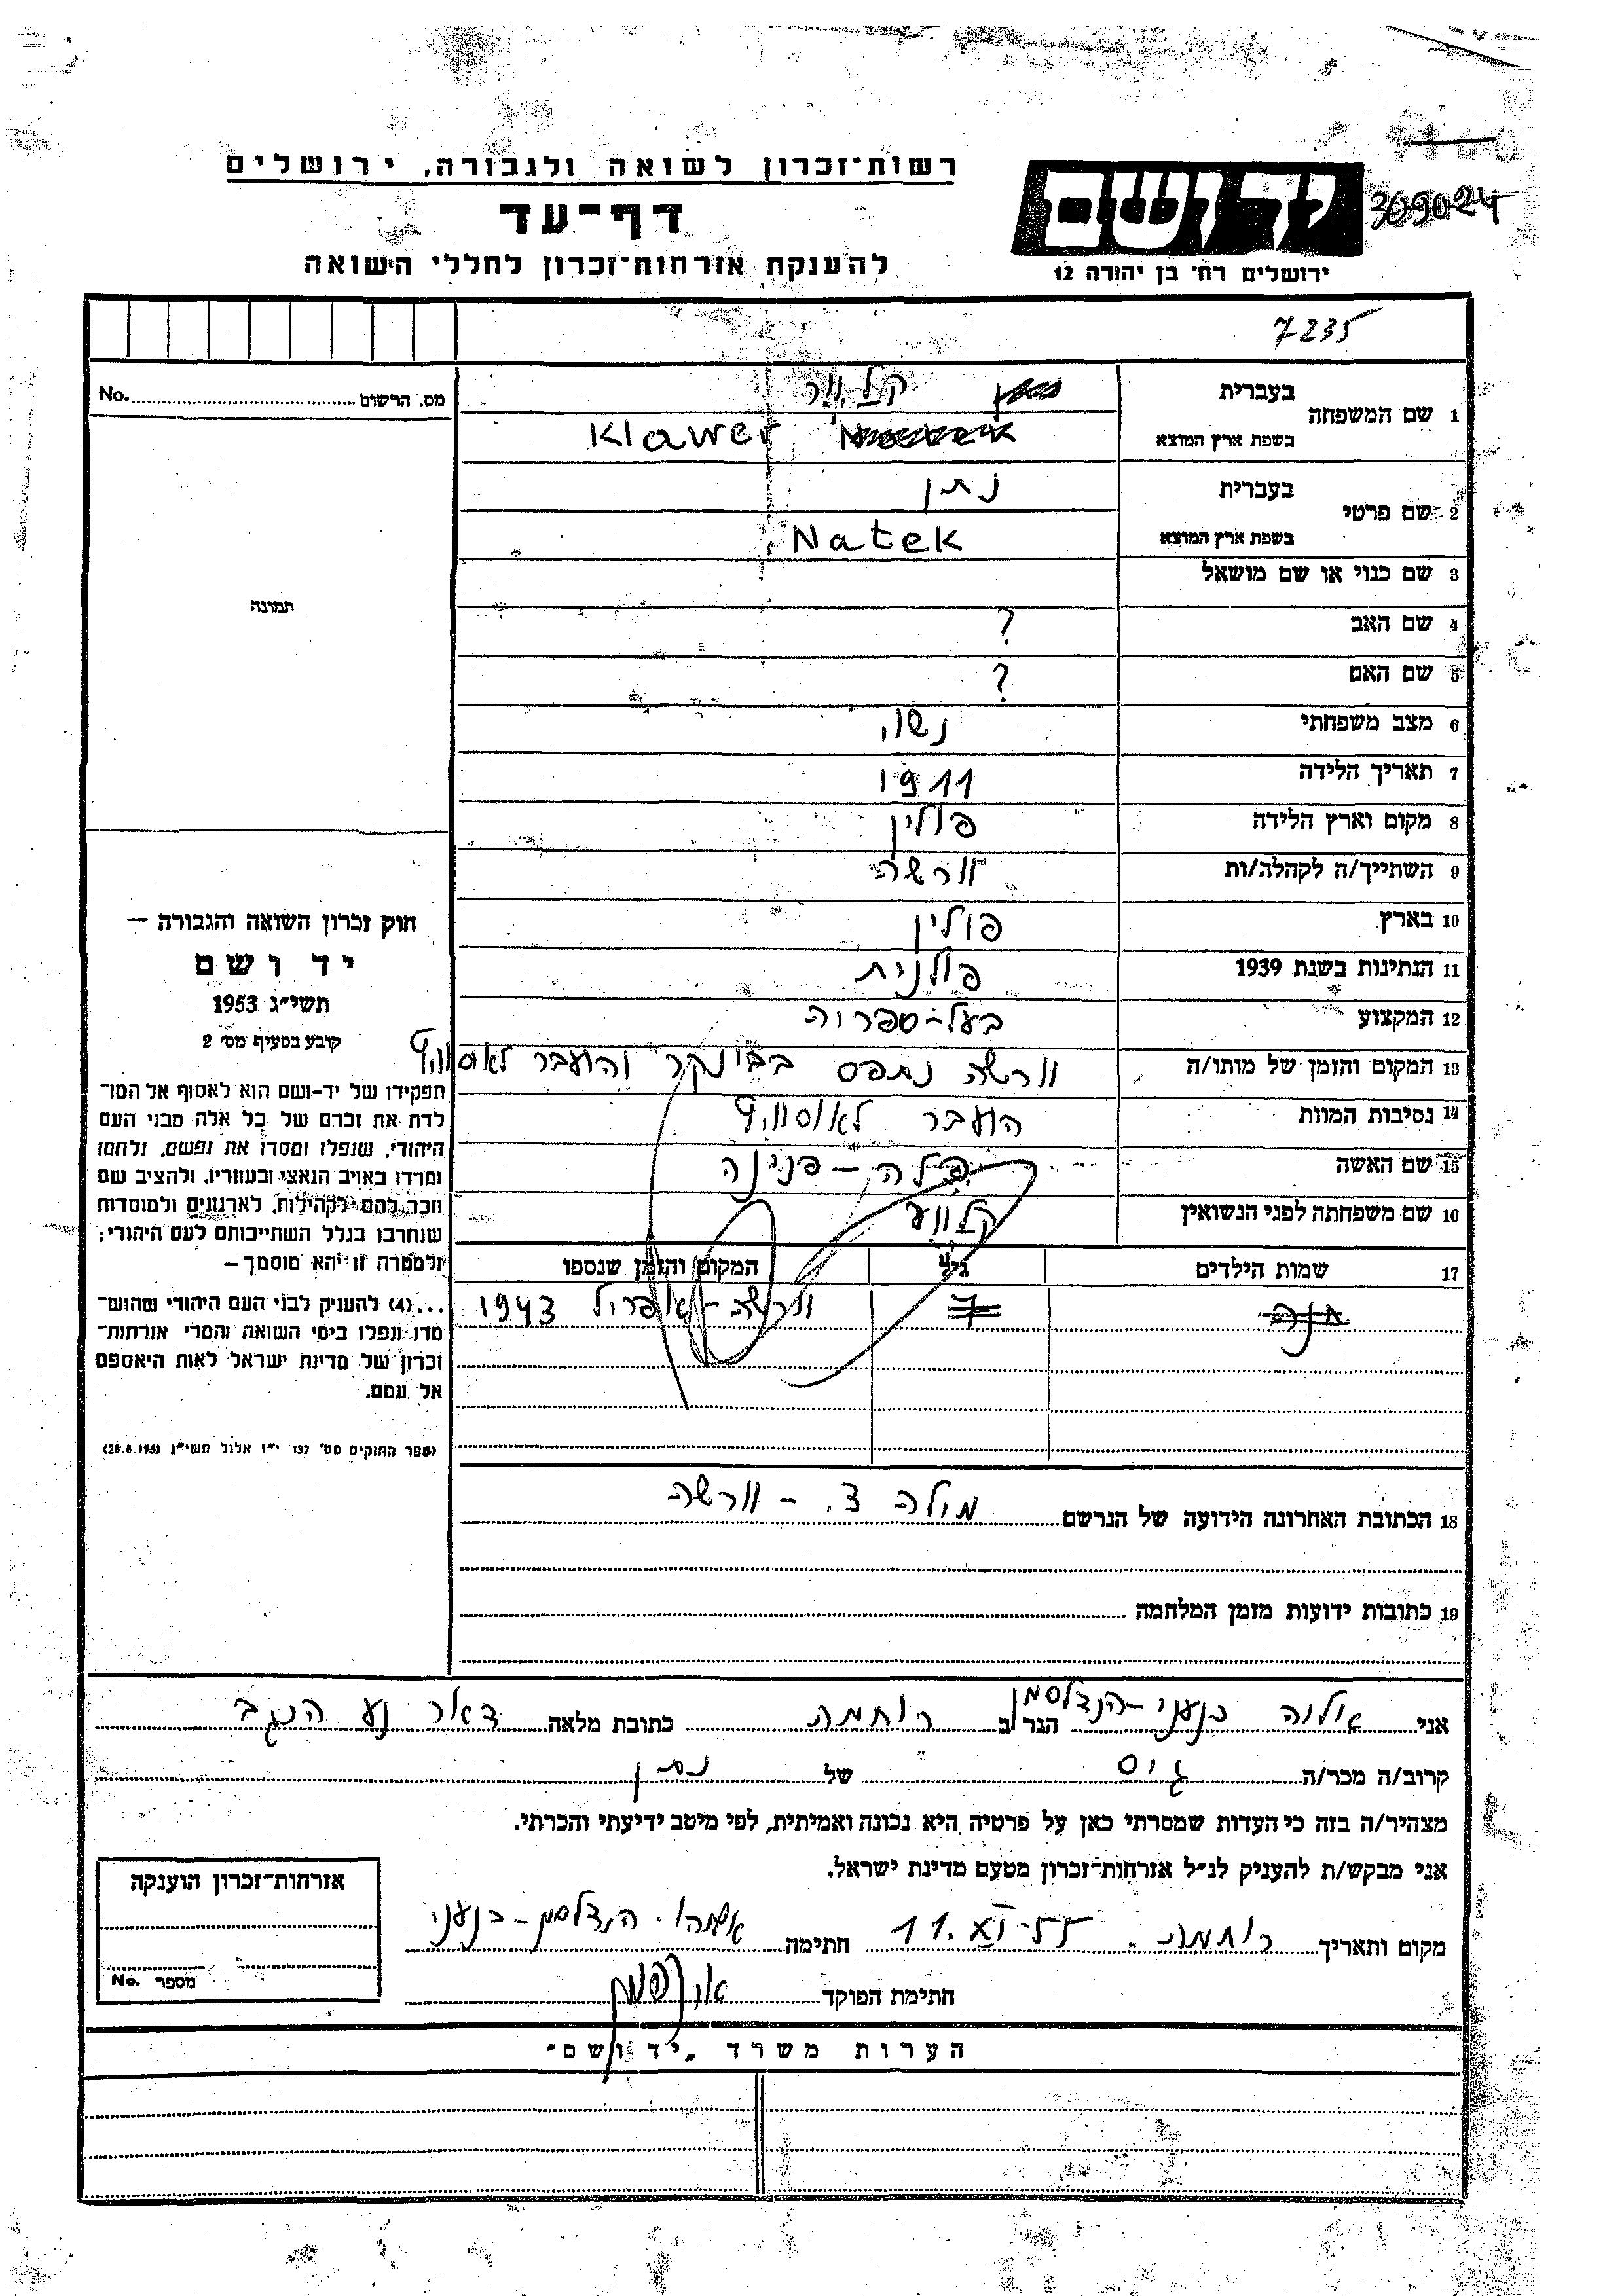 רשות־זכרון לשואה ולגבורה, ירושלים
דף־עד
להענקת אזרחות־זכרון לחללי השואה
ירושלים רח׳ בן יהודה 12
309024
7235
מס. הרשום No.
תמונה
1 שם המשפחה
בעברית קלוור
בשפת ארץ המוצא Klawer
2 שם פרטי
בעברית נתן
בשפת ארץ המוצא Natek
3 שם כנוי או שם מושאל
4 שם האב ?
5 שם האם ?
6 מצב משפחתי נשוי
7 תאריך הלידה 1911
8 מקום וארץ הלידה פולין
9 השתייך/ה לקהלה/ות וורשה
10 בארץ פולין
11 הנתינות בשנת 1939 פולנית
12 המקצוע בעל-ספריה
13 המקום והזמן של מותו/ה וורשה נתפס בבונקר והועבר לאוסוויץ
14 נסיבות המוות הועבר לאוסוויץ
15 שם האשה פלה-פנינה
16 שם משפחתה לפני הנשואין
17 שמות הילדים גיל המקום והזמן שנספו
חנה 7 וורשה-אפריל 1943
18 הכתובת האחרונה הידועה של הנרשם מילה 3. - וורשה
19 כתובות ידועות מזמן המלחמה
חוק זכרון השואה והגבורה —
יד ושם
תשי״ג 1953
קובע בסעיף מס׳ 2
תפקידו של יד-ושם הוא לאסוף אל המו־
לדת את זכרם של כל אלה מבני העם
היהודי, שנפלו ומסרו את נפשם, נלחמו
ומרדו באויב הנאצי ובעוזריו, ולהציב שם
וזכר להם לקהילות, לארגונים ולמוסדות
שנחרבו בגלל השתייכותם לעם היהודי;
ולמטרה זו יהא מוסמך —
...(4) להעניק לבני העם היהודי שהוש־
מדו ונפלו בימי השואה והמרי אזרחות־
זכרון של מדינת ישראל לאות היאספם
אל עמם.
(ספר החוקים מס׳ 132 י״ז אלול תשי״ג 28.8.1953)
אני אילזה כנעני-הנדלסמן הגר ב רוחמה כתובת מלאה דאר נע הנגב
קרוב/ה מכר/ה גיס של נתן
מצהיר/ה בזה כי העדות שמסרתי כאן על פרטיה היא נכונה ואמיתית, לפי מיטב ידיעתי והכרתי.
אני מבקש/ת להעניק לנ״ל אזרחות־זכרון מטעם מדינת ישראל.
מקום ותאריך רוחמה. 11.XI-55 חתימה הנדלסמן-כנעני
חתימת הפוקד
אזרחות־זכרון הוענקה
מספר No.
הערות משרד „יד ושם״